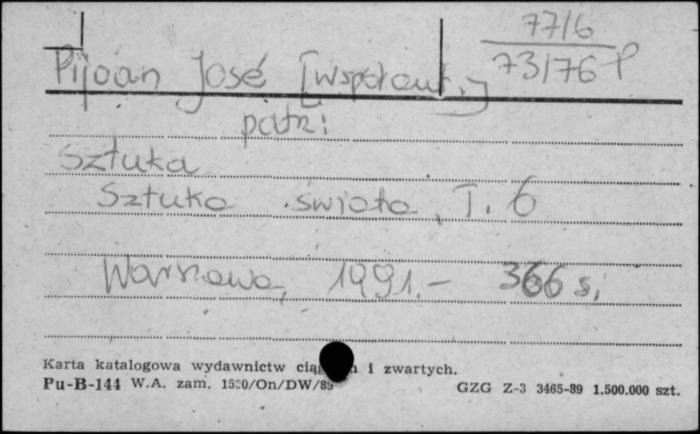 77/6
73/76 P
Pijoan José [współaut.]
patrz:
Sztuka
Sztuka świata, T. 6
Warszawa, 1991.- 366 s.
Karta katalogowa wydawnictw i zwartych.
Pu-B-144 W.A. zam. 1530/On/DW/89 GZG Z-3 3465-89 1.500.000 szt.